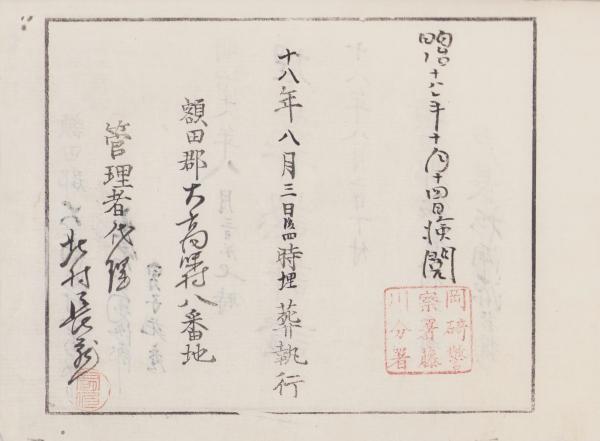 明治十八年十月十四日検閲
岡崎警
察署藤
川分署
十八年八月三日后四時埋葬執行
額田郡大高味八番地
管理者代理
北村長